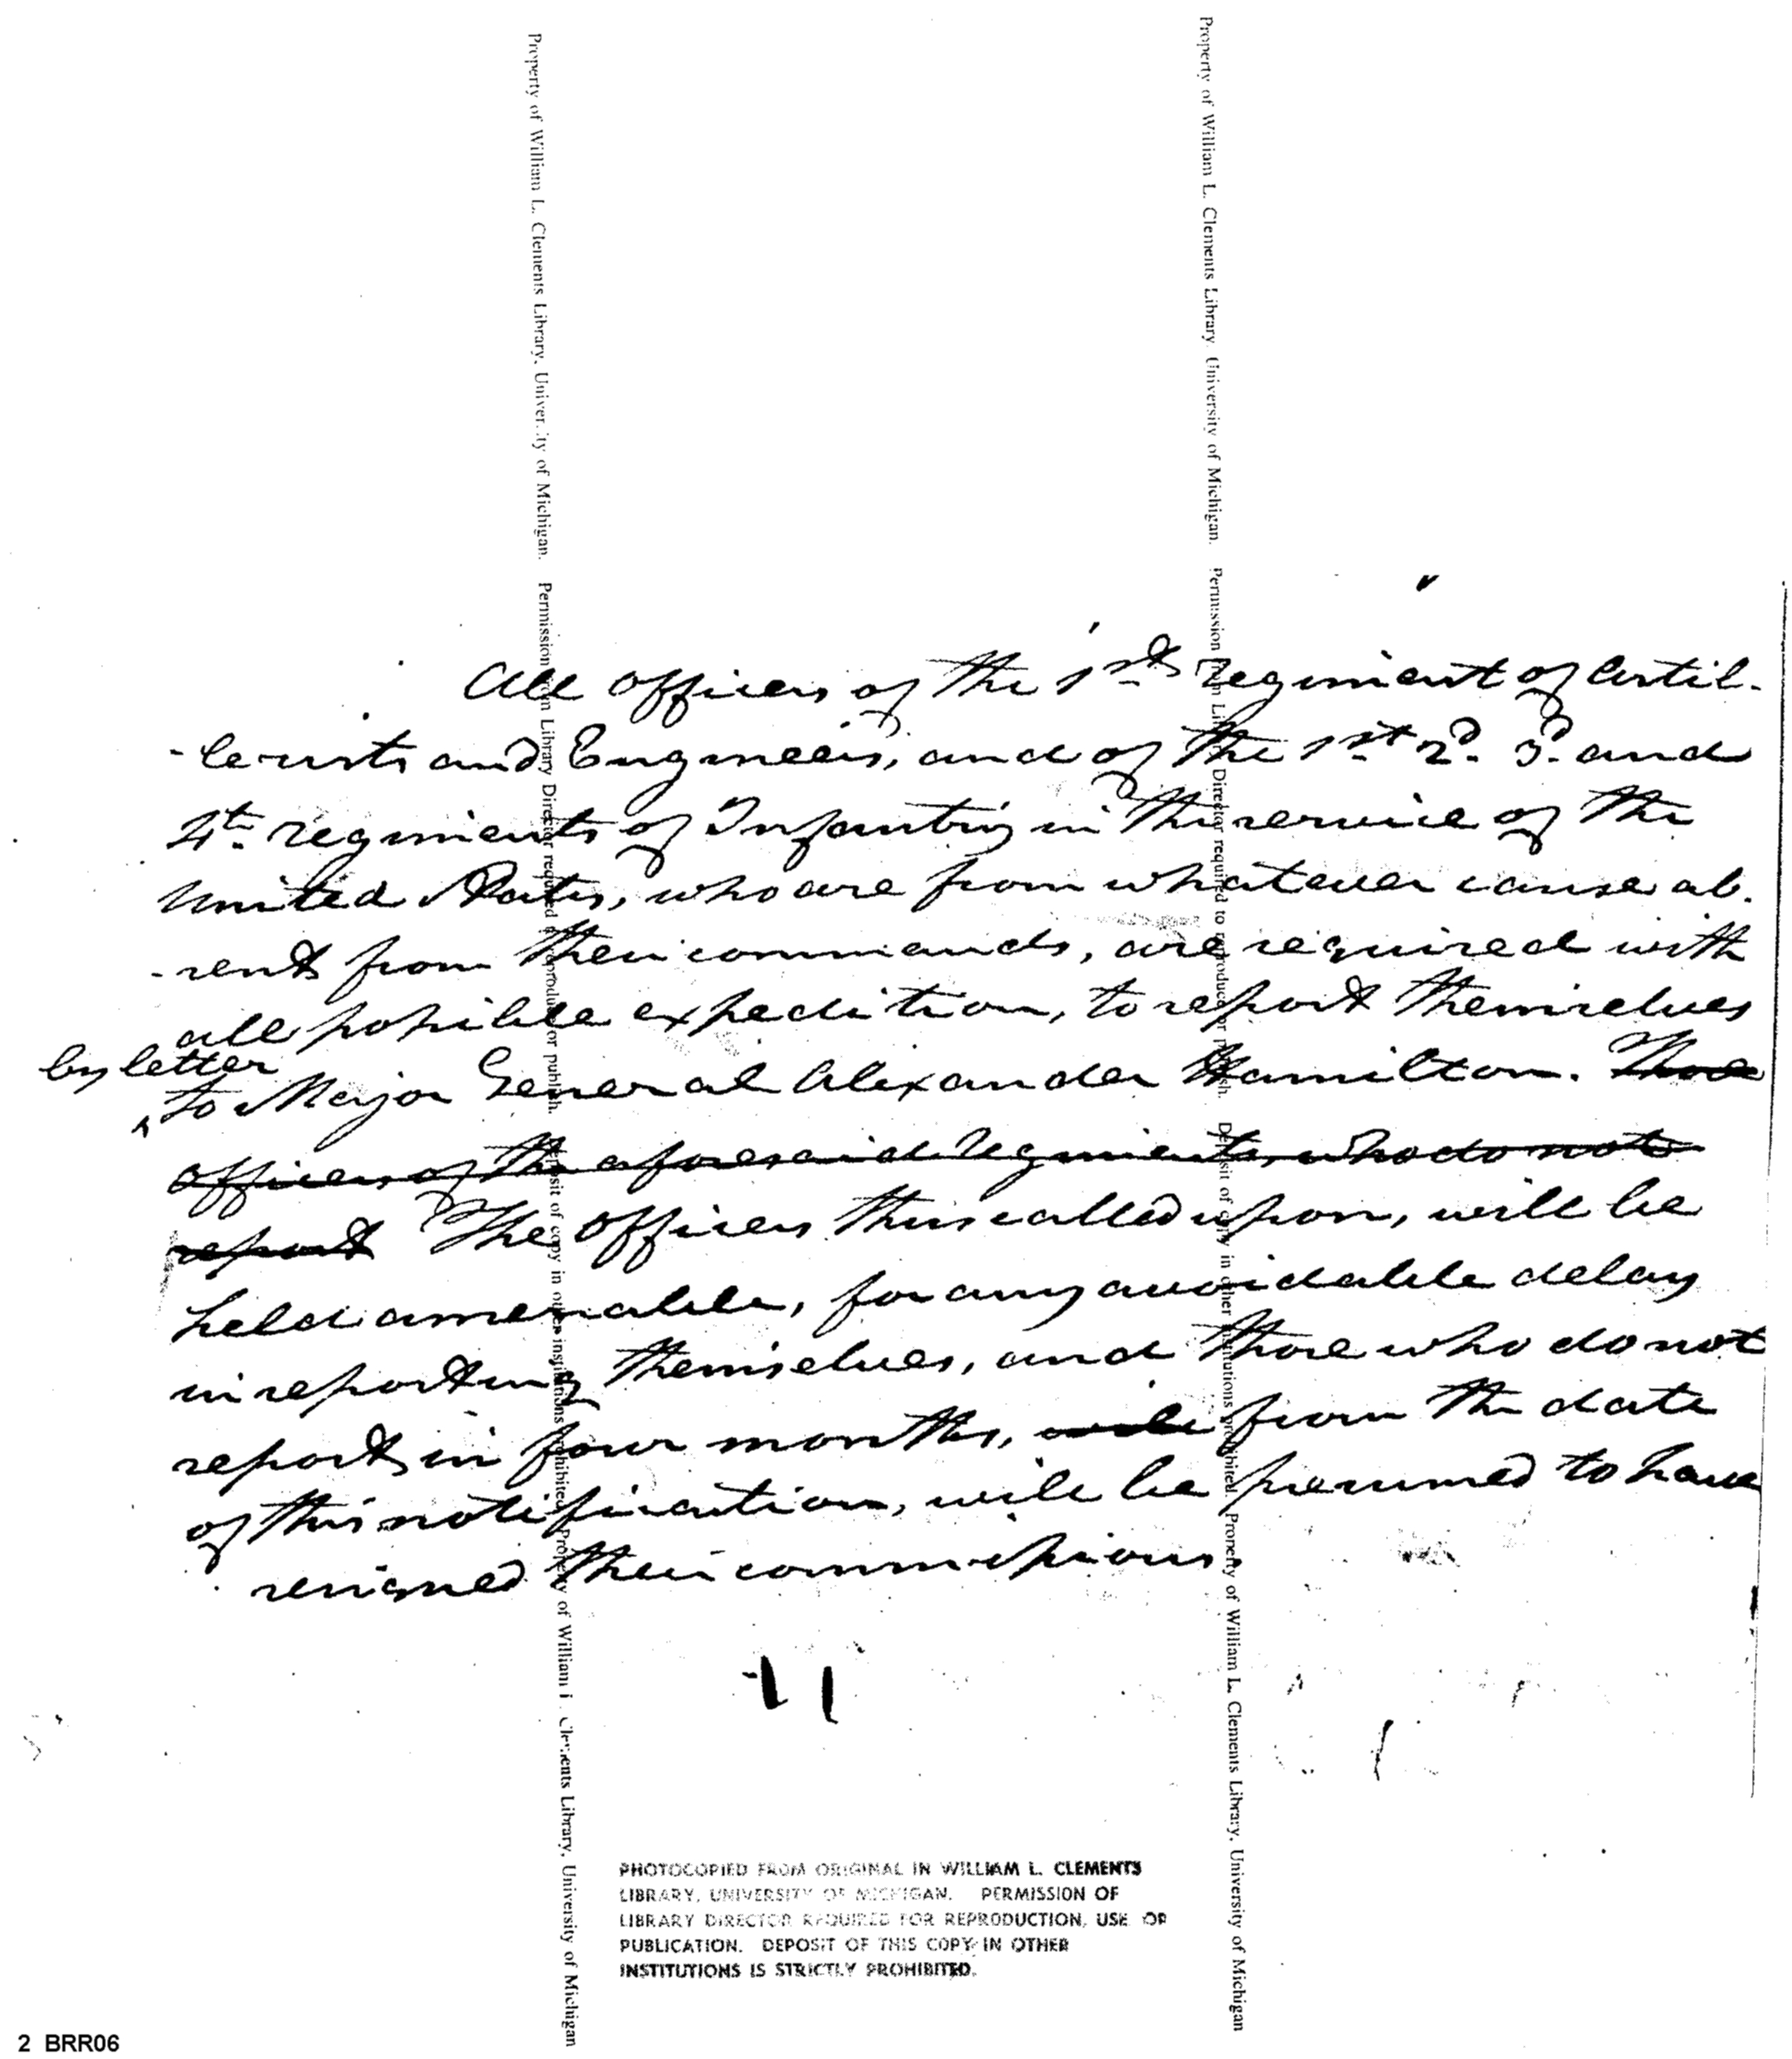 All officers of the 1st regiment of Artil-
-lerists and Engineers, and of the 1st 2d. 3d. and
4th regiments of Infantry in the service of the
United States, who are from whatever cause ab-
-sent from their commands, are required with
all possible expedition, to report themselves
by letter
^ to Major General Alexander Hamilton. Those
officers of the aforesaid regiments, who do not
report The officers thus called upon, will be
held amenable, for any avoidable delay
in reporting themselves, and those who do not
report in four months, will from the date
of this notification, will be presumed to have
resigned their commissions.
PHOTOCOPIED FROM ORIGINAL IN WILLIAM L. CLEMENTS
LIBRARY, UNIVERSITY OF MICHIGAN. PERMISSION OF
LIBRARY DIRECTOR REQUIRED FOR REPRODUCTION, USE OR
PUBLICATION. DEPOSIT OF THIS COPY IN OTHER
INSTITUTIONS IS STRICTLY PROHIBITED.
2 BRR06
Property of William L. Clements Library, University of Michigan. Permission from Library Director required to reproduce or publish. Deposit of copy in other institutions prohibited. Property of William L. Clements Library, University of Michigan
Property of William L. Clements Library, University of Michigan. Permission from Library Director required to reproduce or publish. Deposit of copy in other institutions prohibited. Property of William L. Clements Library, University of Michigan